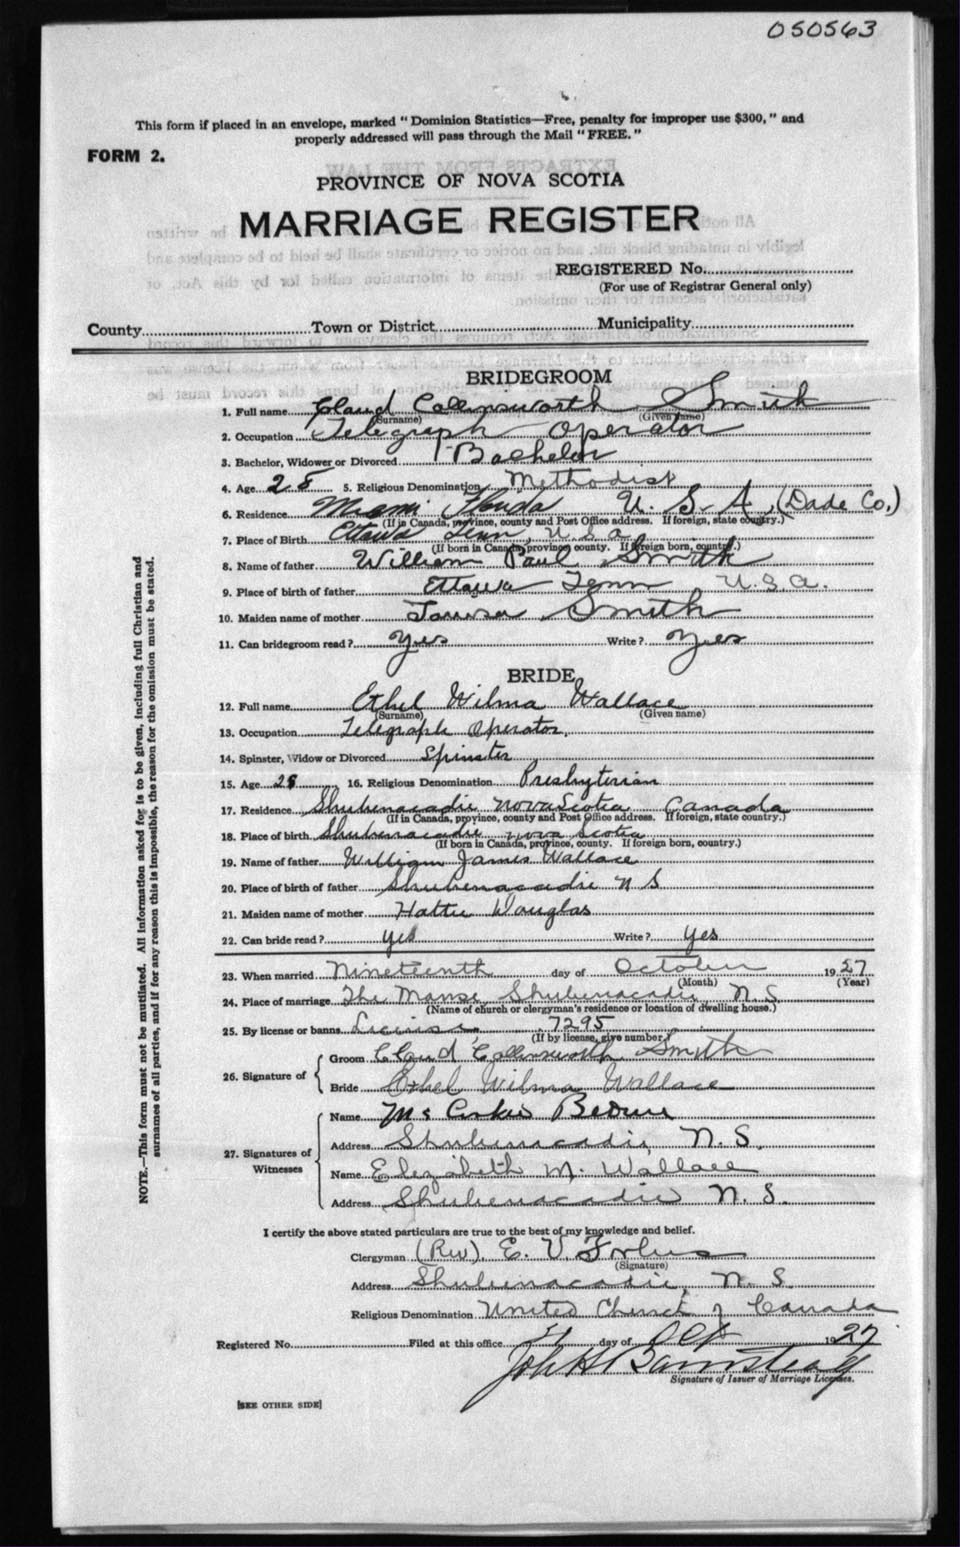 050563
This form if placed in an envelope, marked "Dominion Statistics—Free, penalty for improper use $300," and
properly addressed will pass through the Mail "FREE."
FORM 2.
PROVINCE OF NOVA SCOTIA
MARRIAGE REGISTER
REGISTERED No.
(For use of Registrar General only)
County Town or District Municipality
BRIDEGROOM
1. Full name Claud Collinsworth Smith
(Surname) (Given name)
2. Occupation Telegraph Operator
3. Bachelor, Widower or Divorced Bachelor
4. Age 28 5. Religious Denomination Methodist
6. Residence Miami Florida U. S. A, (Dade Co.)
(If in Canada, province, county and Post Office address. If foreign, state country.)
7. Place of Birth Ettawa Tenn, U.S.A
(If born in Canada, province, county. If foreign born, country.)
8. Name of father William Paul Smith
9. Place of birth of father Ettawa Tenn U.S.A.
10. Maiden name of mother Smith
11. Can bridegroom read? Yes Write? Yes
BRIDE
12. Full name Ethel Wilma Wallace
(Surname) (Given name)
13. Occupation Telegraph Operator.
14. Spinster, Widow or Divorced Spinster
15. Age 28 16. Religious Denomination Presbyterian
17. Residence Shubenacadie Nova Scotia Canada
(If in Canada, province, county and Post Office address. If foreign, state country.)
18. Place of birth Shubenacadie Nova Scotia
(If born in Canada, province, county. If foreign born, country.)
19. Name of father William James Wallace
20. Place of birth of father Shubenacadie N S
21. Maiden name of mother Hattie Douglas
22. Can bride read? yes Write? yes
23. When married Nineteenth day of October 1927
(Month) (Year)
24. Place of marriage The Manse, Shubenacadie, N.S.
(Name of church or clergyman's residence or location of dwelling house.)
25. By license or banns License, 7295
(If by license, give number.)
26. Signature of
Groom Claud Collinsworth Smith
Bride Ethel Wilma Wallace
27. Signatures of Witnesses
Name
Address Shubenacadie, N.S.
Name Elizabeth M. Wallace
Address Shubenacadie N.S.
I certify the above stated particulars are true to the best of my knowledge and belief.
Clergyman (Rev). E. V Forbes
(Signature)
Address Shubenacadie, N.S.
Religious Denomination United Church of Canada
Registered No. Filed at this office 21 day of Oct 1927
Signature of Issuer of Marriage Licenses.
[SEE OTHER SIDE]
NOTE.—This form must not be mutilated. All information asked for is to be given, including full Christian and
surnames of all parties, and if for any reason this is impossible, the reason for the omission must be stated.